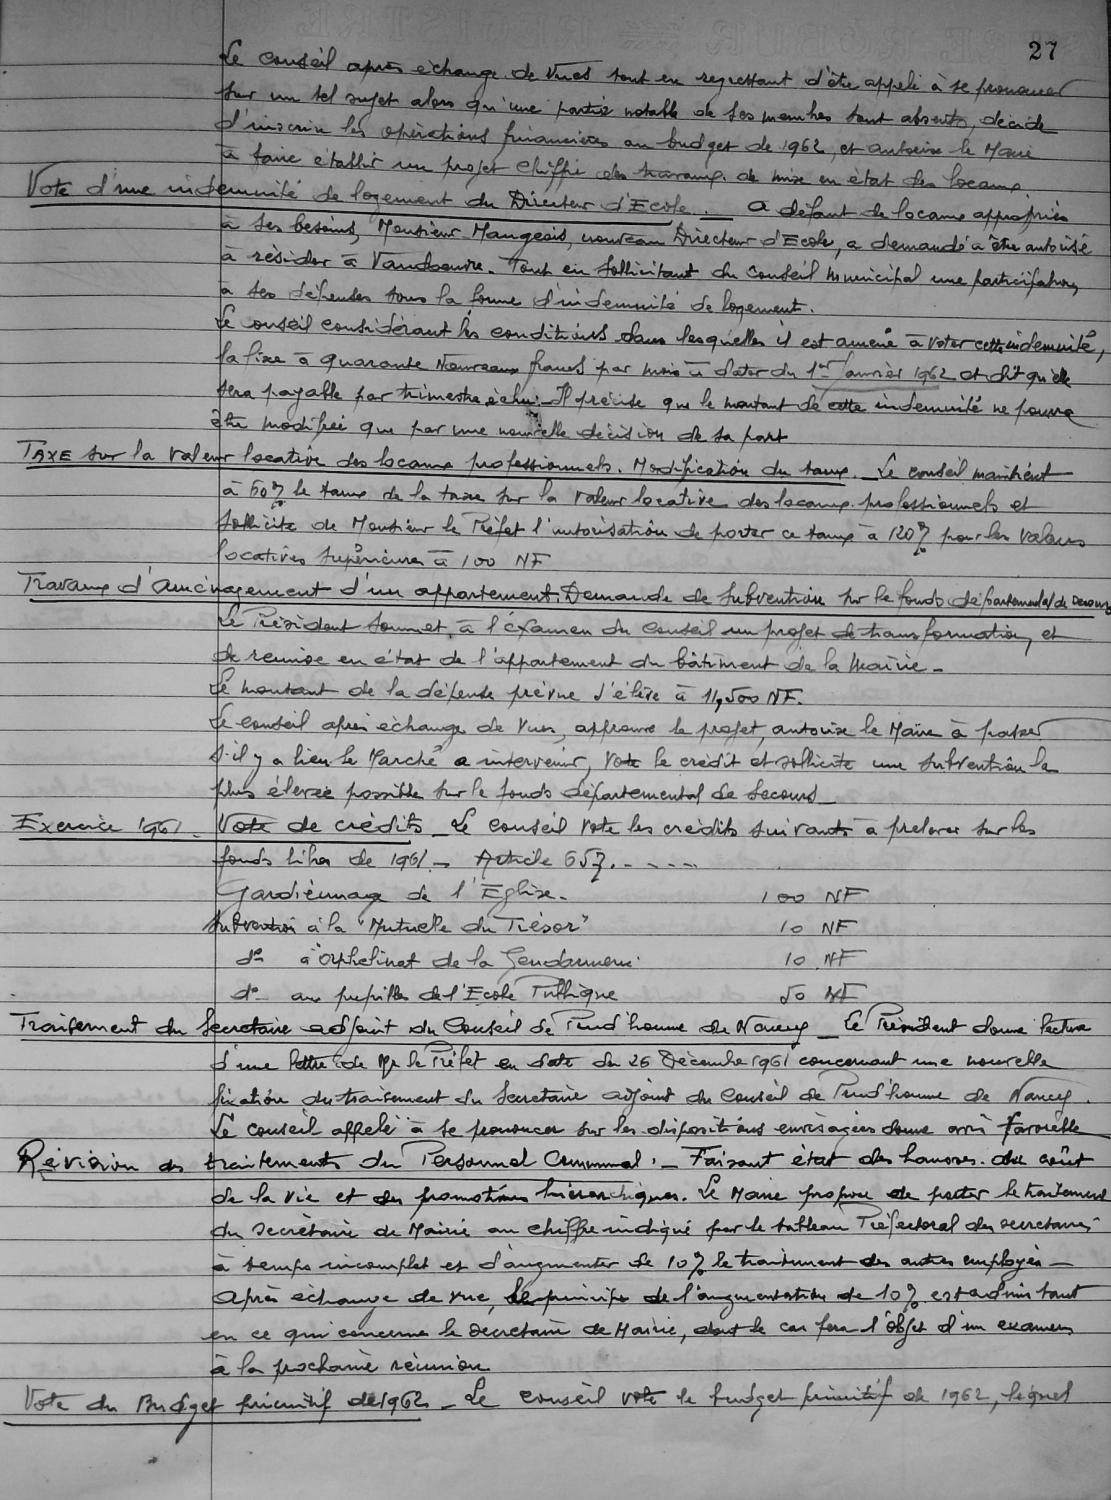 27
Le conseil après échange de vues tout en regrettant d'être appelé à se prononcer
sur un tel sujet alors qu'une partie notable de ses membres sont absents, décide
d'inscrire les opérations financières au budget de 1962, et autorise le Maire
à faire établir un projet chiffré des travaux de mise en état des locaux.
Vote d'une indemnité de logement du Directeur d'Ecole. — A défaut de locaux appropriés
à ses besoins, Monsieur Mangeois, nouveau Directeur d'Ecole, a demandé à être autorisé
à résider à Vandoeuvre. Tout en sollicitant du conseil municipal une participation
à ses dépenses sous la forme d'indemnité de logement.
Le conseil considérant les conditions dans lesquelles il est amené à voter cette indemnité,
la fixe à quarante Nouveaux francs par mois à dater du 1er Janvier 1962 et dit qu'elle
sera payable par trimestre échu. — Il précise que le montant de cette indemnité ne pourra
être modifiée que par une nouvelle décision de sa part
TAXE sur la valeur locative des locaux professionnels. Modification du taux. — Le conseil maintient
à 60% le taux de la taxe sur la valeur locative des locaux professionnels et
sollicite de Monsieur le Préfet l'autorisation de porter ce taux à 120% pour les valeurs
locatives supérieures à 100 NF
Travaux d'aménagement d'un appartement. Demande de subvention sur le fonds départemental de secours
Le Président soumet à l'éxamen du conseil un projet de transformation, et
de remise en état de l'appartement du bâtiment de la Mairie —
Le montant de la dépense prévue s'élève à 11,500 NF.
Le conseil après échange de vues, approuve le projet, autorise le Maire à passer
s'il y a lieu le Marché à intervenir, vote le crédit et sollicite une subvention la
plus élevée possible sur le fonds départemental de secours —
Exercice 1961. Vote de crédits — Le conseil vote les crédits suivants à prélever sur les
fonds libres de 1961 — Article 657. - - - -
Gardiennage de l'Eglise. 100 NF
Subvention à la "Mutuelle du Trésor" 10 NF
do à Orphelinat de la Gendarmerie 10 NF
do aux pupilles de l'Ecole Publique 50 NF
Traitement du Secretaire adjoint du Conseil de Prud'homme de Nancy — Le Président donne lecture
d'une lettre de Mr le Préfet en date du 26 Décembre 1961 concernant une nouvelle
fixation du traitement du Secretaire adjoint du Conseil de Prud'homme de Nancy.
Le conseil appelé à se prononcer sur les dispositions envisagées donne avis favorable
Révision des traitements du Personnel Communal. — Faisant état des hausses du coût
de la vie et des promotions hiérarchiques. Le Maire propose de porter le traitement
du secrétaire de Mairie au chiffre indiqué par le tableau Préfectoral des secretaires
à temps incomplet et d'augmenter de 10% le traitement des autres employés —
Après échange de vue, le principe de l'augmentation de 10% est admis sauf
en ce qui concerne le secretaire de Mairie, dont le cas fera l'objet d'un examen
à la prochaine réunion
Vote du Budget primitif de 1962 — Le conseil vote le budget primitif de 1962, lequel